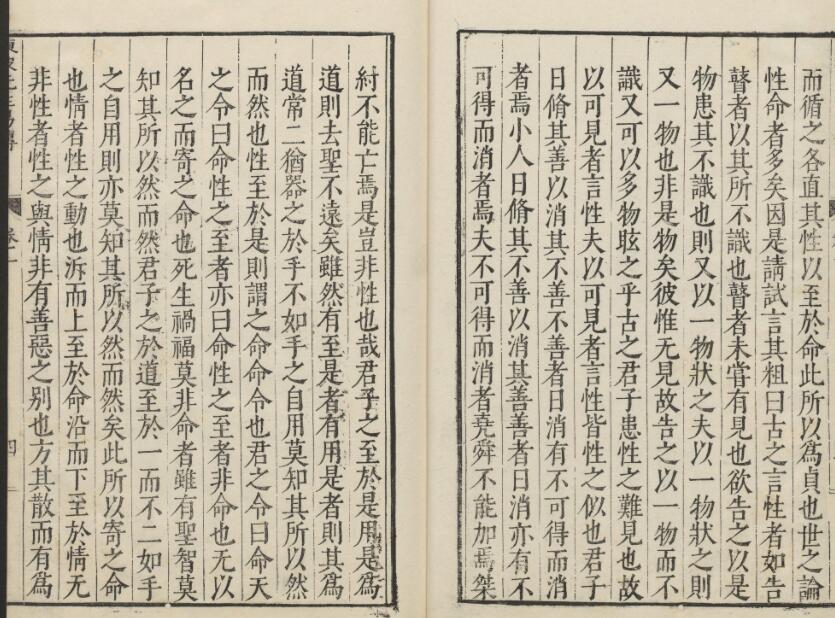 而循之各直其性以至於命此所以爲貞也世之論
性命者多矣因是請試言其粗曰古之言性者如告
瞽者以其所不識也瞽者未嘗有見也欲告之以是
物患其不識也則又以一物狀之夫以一物狀之則
又一物也非是物矣彼惟无見故告之以一物而不
識又可以多物眩之乎古之君子患性之難見也故
以可見者言性夫以可見者言性皆性之似也君子
日脩其善以消其不善不善者日消有不可得而消
者焉小人日脩其不善以消其善善者日消亦有不
可得而消者焉夫不可得而消者堯舜不能加焉桀
紂不能亡焉是豈非性也哉君子之至於是用是爲
道則去聖不遠矣雖然有至是者有用是者則其爲
道常二猶器之於手不如手之自用莫知其所以然
而然也性至於是則謂之命命令也君之令曰命天
之令曰命性之至者亦曰命性之至者非命也无以
名之而寄之命也死生禍福莫非命者雖有聖智莫
知其所以然而然君子之於道至於一而不二如手
之自用則亦莫知其所以然而然矣此所以寄之命
也情者性之動也泝而上至於命沿而下至於情无
非性者性之與情非有善惡之别也方其散而有爲
卷一
四